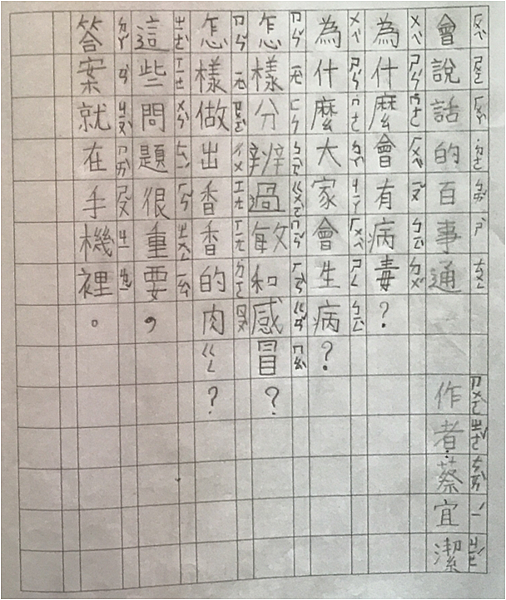 會說話的百事通
作者:蔡宜潔
為什麼會有病毒?
為什麼大家會生病?
怎樣分辨過敏和感冒?
怎樣做出香香的肉ㄍㄥ?
這些問題很重要,
答案就在手機裡。